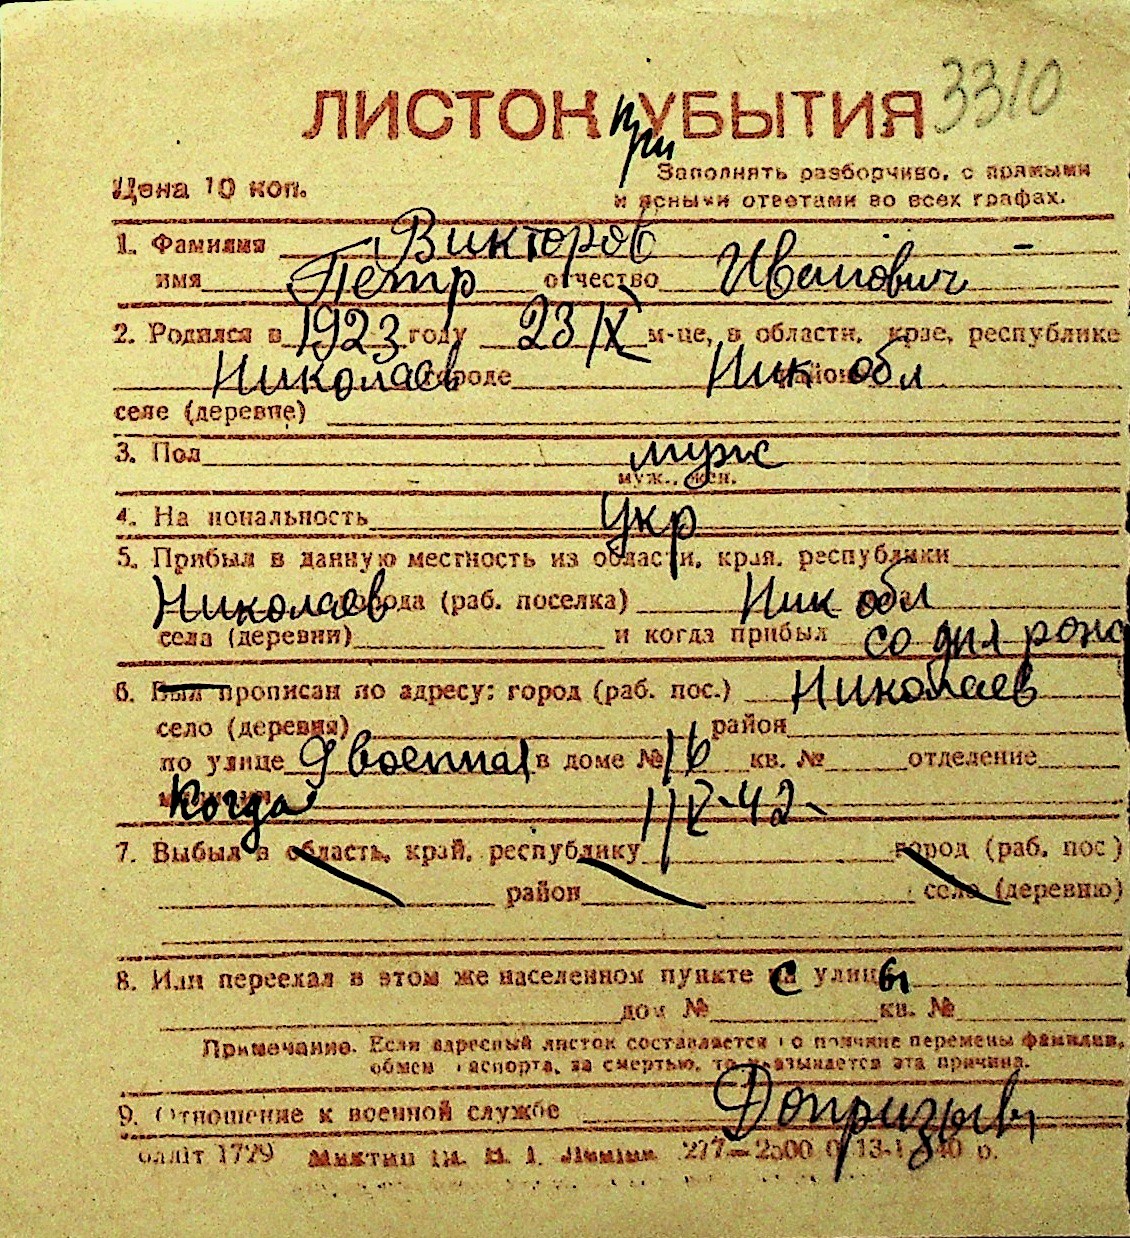 3310
ЛИСТОК при УБЫТИЯ
Цена 10 коп.
Заполнять разборчиво, с прямыми
и ясными ответами во всех графах.
1. Фамилия Викторов
имя Петр отчество Иванович
2. Родился в 1923 году 23/IX м-це, в области, крае, республике
Николаев городе Ник обл район
селе (деревне)
3. Пол муж
муж., жен.
4. На иональность Укр
5. Прибыл в данную местность из области, края, республики
Николаев города (раб. поселка) Ник обл
села (деревни) и когда прибыл со дня рож
6. Был прописан по адресу: город (раб. пос.) Николаев
село (деревня) район
по улице 9 военная в доме № 16 кв. № отделение
Когда 1/IX-42
7. Выбыл в область, край, республику город (раб. пос)
район село (деревню)
8. Или переехал в этом же населенном пункте с улицы
дом № кв. №
Примечание. Если адресный листок составляется по причине перемены фамилии,
обмен паспорта, за смертью, то указывается эта причина.
9. Отношение к военной службе Допризыв
облліт 1729 277—2500 40 р.